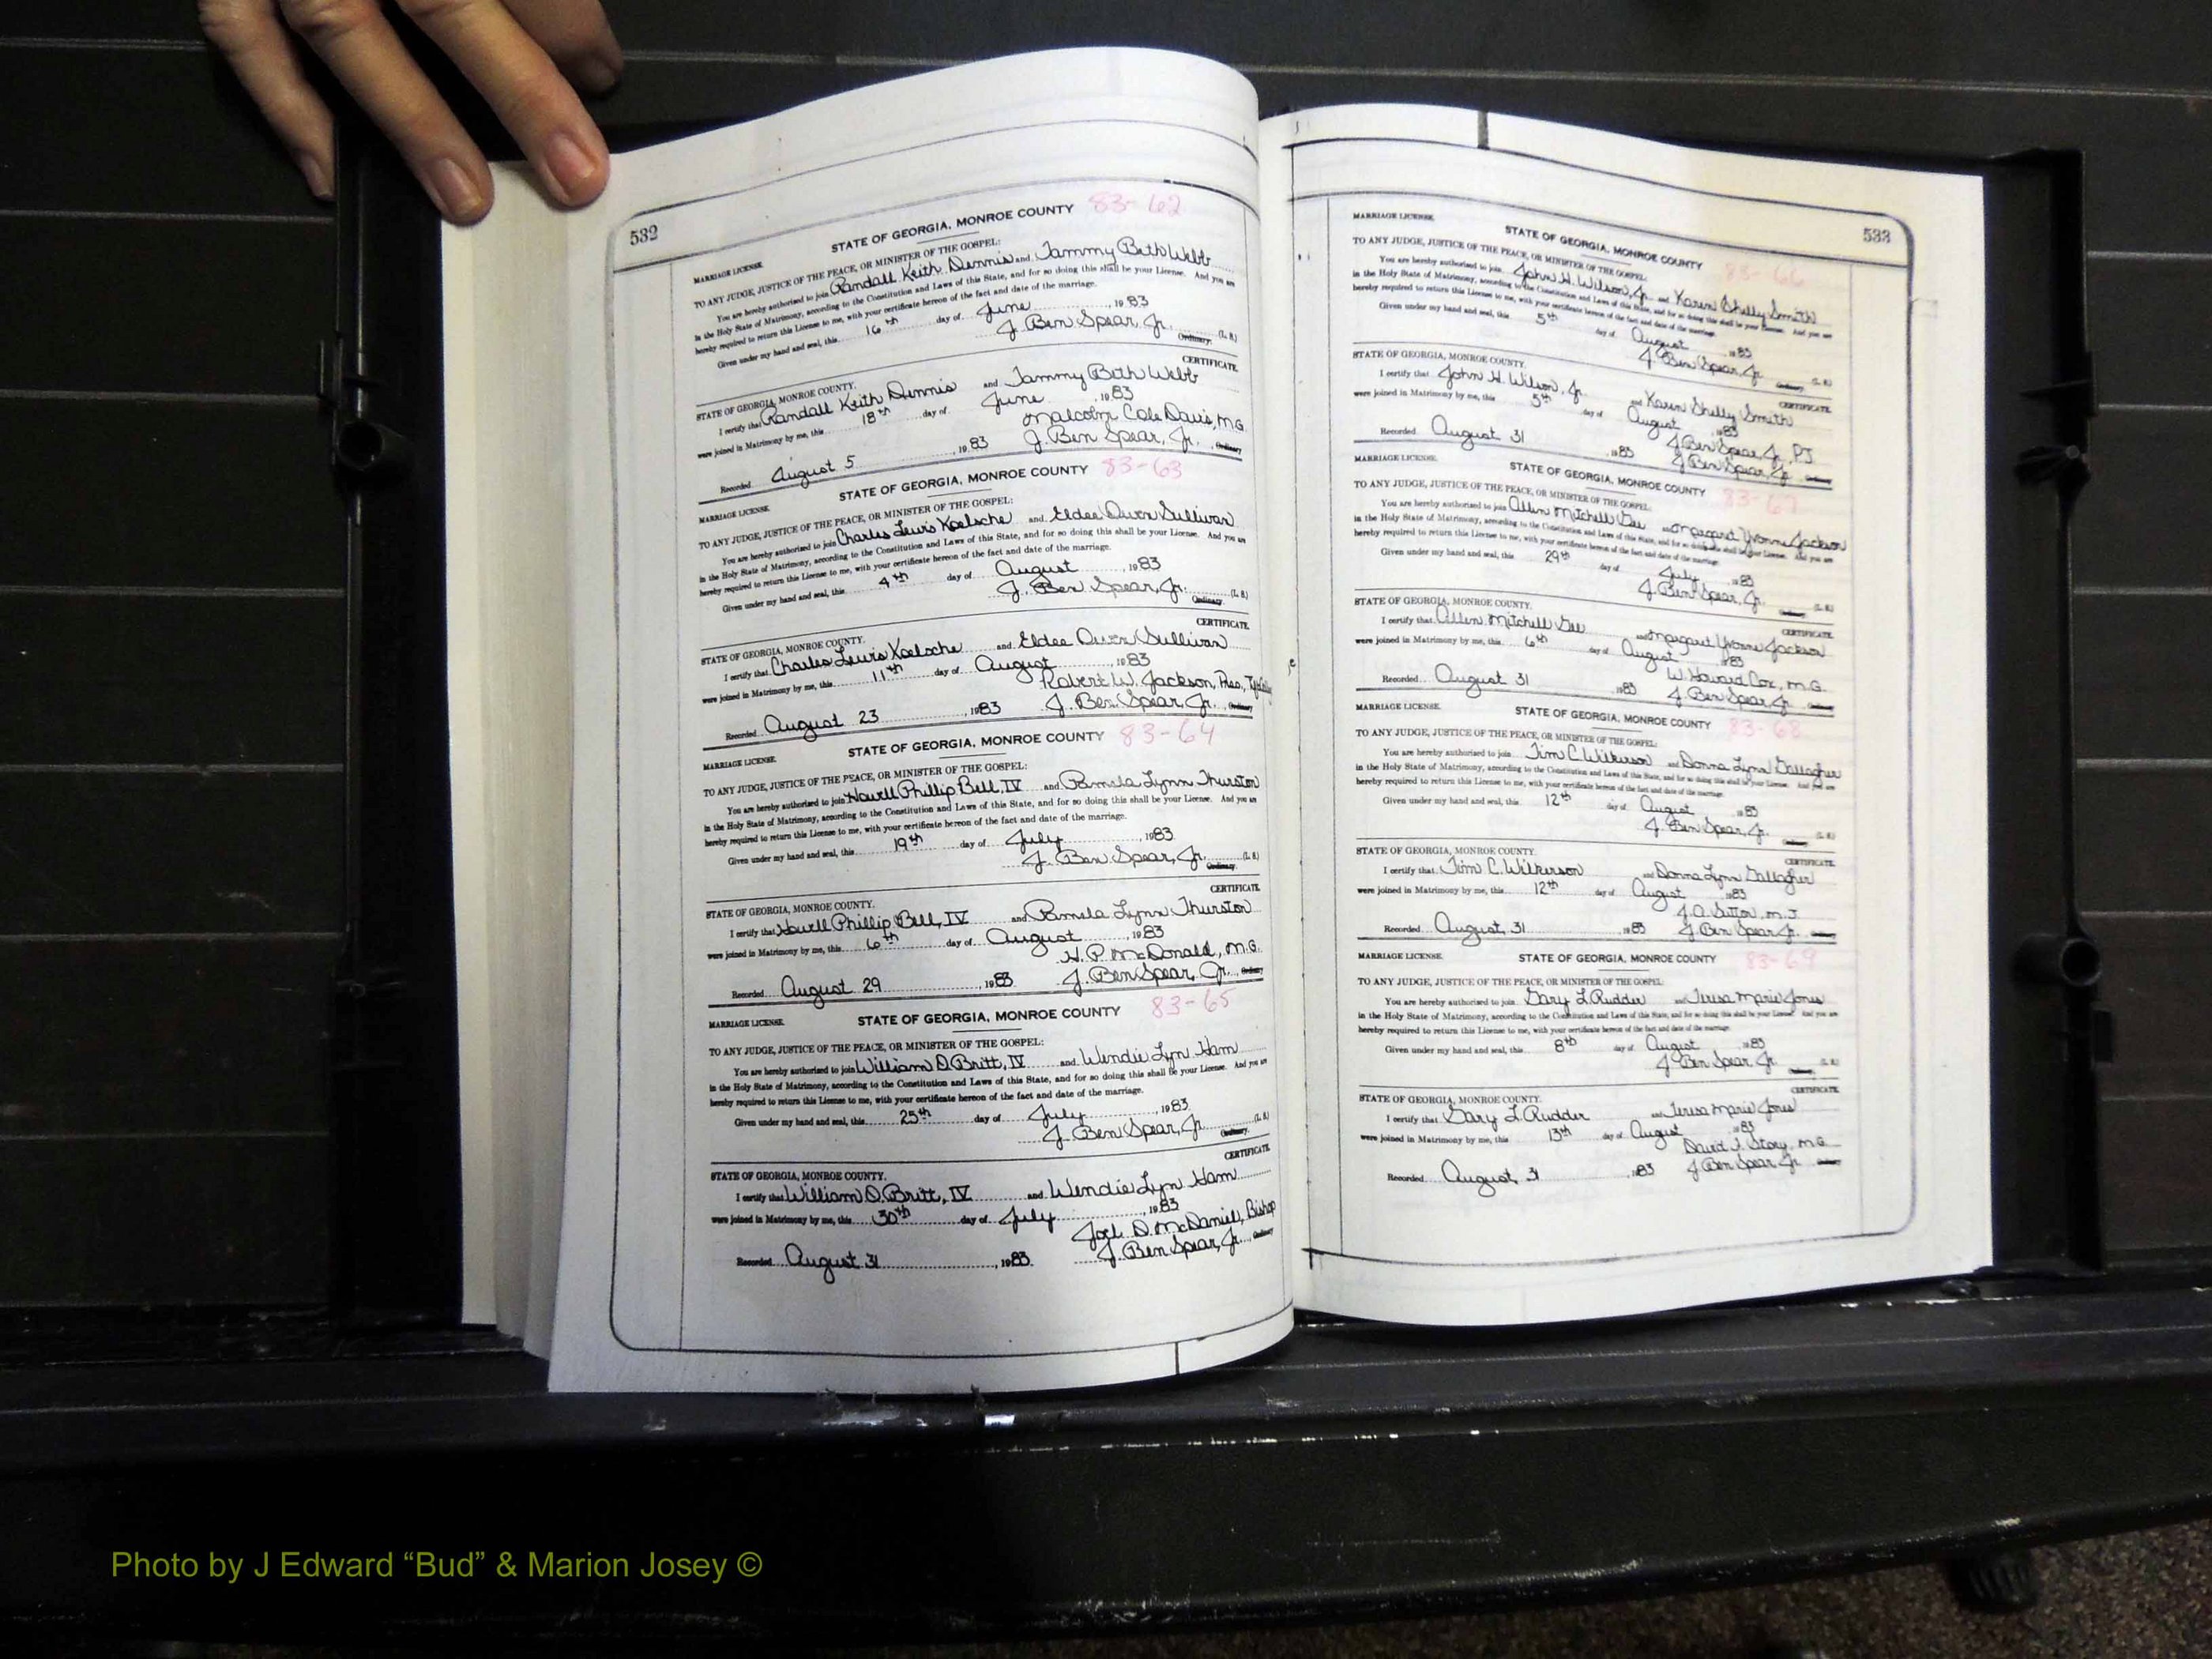 532
STATE OF GEORGIA, MONROE COUNTY 83-62
MARRIAGE LICENSE.
TO ANY JUDGE, JUSTICE OF THE PEACE, OR MINISTER OF THE GOSPEL:
You are hereby authorized to join Randall Keith Dennis and Tammy Beth Webb
in the Holy State of Matrimony, according to the Constitution and Laws of this State, and for so doing this shall be your License. And you are
hereby required to return this License to me, with your certificate hereon of the fact and date of the marriage.
Given under my hand and seal, this 16th day of June, 1983
J. Ben Spear, Jr. Ordinary. (L. S.)
CERTIFICATE.
STATE OF GEORGIA, MONROE COUNTY.
I certify that Randall Keith Dennis and Tammy Beth Webb
were joined in Matrimony by me, this 18th day of June, 1983
Malcolm Cole Davis, M.G.
Recorded August 5, 1983 J. Ben Spear, Jr., Ordinary
STATE OF GEORGIA, MONROE COUNTY 83-63
MARRIAGE LICENSE.
TO ANY JUDGE, JUSTICE OF THE PEACE, OR MINISTER OF THE GOSPEL:
You are hereby authorized to join Charles Lewis Koelsche and Eldee Owen Sullivan
in the Holy State of Matrimony, according to the Constitution and Laws of this State, and for so doing this shall be your License. And you are
hereby required to return this License to me, with your certificate hereon of the fact and date of the marriage.
Given under my hand and seal, this 4th day of August, 1983
J. Ben Spear, Jr. Ordinary. (L. S.)
CERTIFICATE.
STATE OF GEORGIA, MONROE COUNTY.
I certify that Charles Lewis Koelsche and Eldee Owen Sullivan
were joined in Matrimony by me, this 11th day of August, 1983
Robert W. Jackson,
Recorded August 23, 1983 J. Ben Spear, Jr., Ordinary
STATE OF GEORGIA, MONROE COUNTY 83-64
MARRIAGE LICENSE.
TO ANY JUDGE, JUSTICE OF THE PEACE, OR MINISTER OF THE GOSPEL:
You are hereby authorized to join Howell Phillip Bell, IV and Pamela Lynn Thurston
in the Holy State of Matrimony, according to the Constitution and Laws of this State, and for so doing this shall be your License. And you are
hereby required to return this License to me, with your certificate hereon of the fact and date of the marriage.
Given under my hand and seal, this 19th day of July, 1983
J. Ben Spear, Jr. Ordinary. (L. S.)
CERTIFICATE.
STATE OF GEORGIA, MONROE COUNTY.
I certify that Howell Phillip Bell, IV and Pamela Lynn Thurston
were joined in Matrimony by me, this 6th day of August, 1983
H. P. McDonald, M.G.
Recorded August 29, 1983 J. Ben Spear, Jr., Ordinary
STATE OF GEORGIA, MONROE COUNTY 83-65
MARRIAGE LICENSE.
TO ANY JUDGE, JUSTICE OF THE PEACE, OR MINISTER OF THE GOSPEL:
You are hereby authorized to join William D. Britt, IV and Wendie Lyn Ham
in the Holy State of Matrimony, according to the Constitution and Laws of this State, and for so doing this shall be your License. And you are
hereby required to return this License to me, with your certificate hereon of the fact and date of the marriage.
Given under my hand and seal, this 25th day of July, 1983
J. Ben Spear, Jr. Ordinary. (L. S.)
CERTIFICATE.
STATE OF GEORGIA, MONROE COUNTY.
I certify that William D. Britt, IV and Wendie Lyn Ham
were joined in Matrimony by me, this 30th day of July, 1983
Joel D. McDaniel, Bishop
Recorded August 31, 1983. J. Ben Spear, Jr., Ordinary
533
MARRIAGE LICENSE. STATE OF GEORGIA, MONROE COUNTY 83-66
TO ANY JUDGE, JUSTICE OF THE PEACE, OR MINISTER OF THE GOSPEL:
You are hereby authorized to join John H. Wilson, Jr. and Karen Shelly Smith
in the Holy State of Matrimony, according to the Constitution and Laws of this State, and for so doing this shall be your License. And you are
hereby required to return this License to me, with your certificate hereon of the fact and date of the marriage.
Given under my hand and seal, this 5th day of August 1983
J. Ben Spear, Jr. Ordinary. (L. S.)
STATE OF GEORGIA, MONROE COUNTY. CERTIFICATE.
I certify that John H. Wilson, Jr. and Karen Shelly Smith
were joined in Matrimony by me, this 5th day of August 1983
J. Ben Spear, Jr., PJ
Recorded August 31, 1983 J. Ben Spear, Jr. Ordinary
MARRIAGE LICENSE. STATE OF GEORGIA, MONROE COUNTY 83-67
TO ANY JUDGE, JUSTICE OF THE PEACE, OR MINISTER OF THE GOSPEL:
You are hereby authorized to join Allen Mitchell Gee and Margaret Yvonne Jackson
in the Holy State of Matrimony, according to the Constitution and Laws of this State, and for so doing this shall be your License. And you are
hereby required to return this License to me, with your certificate hereon of the fact and date of the marriage.
Given under my hand and seal, this 29th day of July 1983
J. Ben Spear, Jr. Ordinary. (L. S.)
STATE OF GEORGIA, MONROE COUNTY. CERTIFICATE.
I certify that Allen Mitchell Gee and Margaret Yvonne Jackson
were joined in Matrimony by me, this 6th day of August 1983
W. Howard Cox, M.G.
Recorded August 31, 1983 J. Ben Spear, Jr. Ordinary
MARRIAGE LICENSE. STATE OF GEORGIA, MONROE COUNTY 83-68
TO ANY JUDGE, JUSTICE OF THE PEACE, OR MINISTER OF THE GOSPEL:
You are hereby authorized to join Tim C. Wilkerson and Donna Lynn Gallagher
in the Holy State of Matrimony, according to the Constitution and Laws of this State, and for so doing this shall be your License. And you are
hereby required to return this License to me, with your certificate hereon of the fact and date of the marriage.
Given under my hand and seal, this 12th day of August 1983
J. Ben Spear, Jr. (L. S.)
STATE OF GEORGIA, MONROE COUNTY. CERTIFICATE.
I certify that Tim C. Wilkerson and Donna Lynn Gallagher
were joined in Matrimony by me, this 12th day of August 1983
J. A. Sutton, M.J.
Recorded August 31, 1983 J. Ben Spear Jr. Ordinary
MARRIAGE LICENSE. STATE OF GEORGIA, MONROE COUNTY 83-69
TO ANY JUDGE, JUSTICE OF THE PEACE, OR MINISTER OF THE GOSPEL:
You are hereby authorized to join Gary L. Rudder and Teresa Marie Jones
in the Holy State of Matrimony, according to the Constitution and Laws of this State, and for so doing this shall be your License. And you are
hereby required to return this License to me, with your certificate hereon of the fact and date of the marriage.
Given under my hand and seal, this 8th day of August 1983
J. Ben Spear, Jr. (L. S.)
CERTIFICATE.
STATE OF GEORGIA, MONROE COUNTY.
I certify that Gary L. Rudder and Teresa Marie Jones
were joined in Matrimony by me, this 13th day of August 1983
David J. Story, M.G.
Recorded August 31, 1983 J. Ben Spear Jr. Ordinary
Photo by J Edward “Bud” & Marion Josey ©